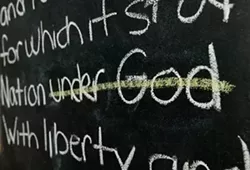 for which it st
Nation under God
With liberty and